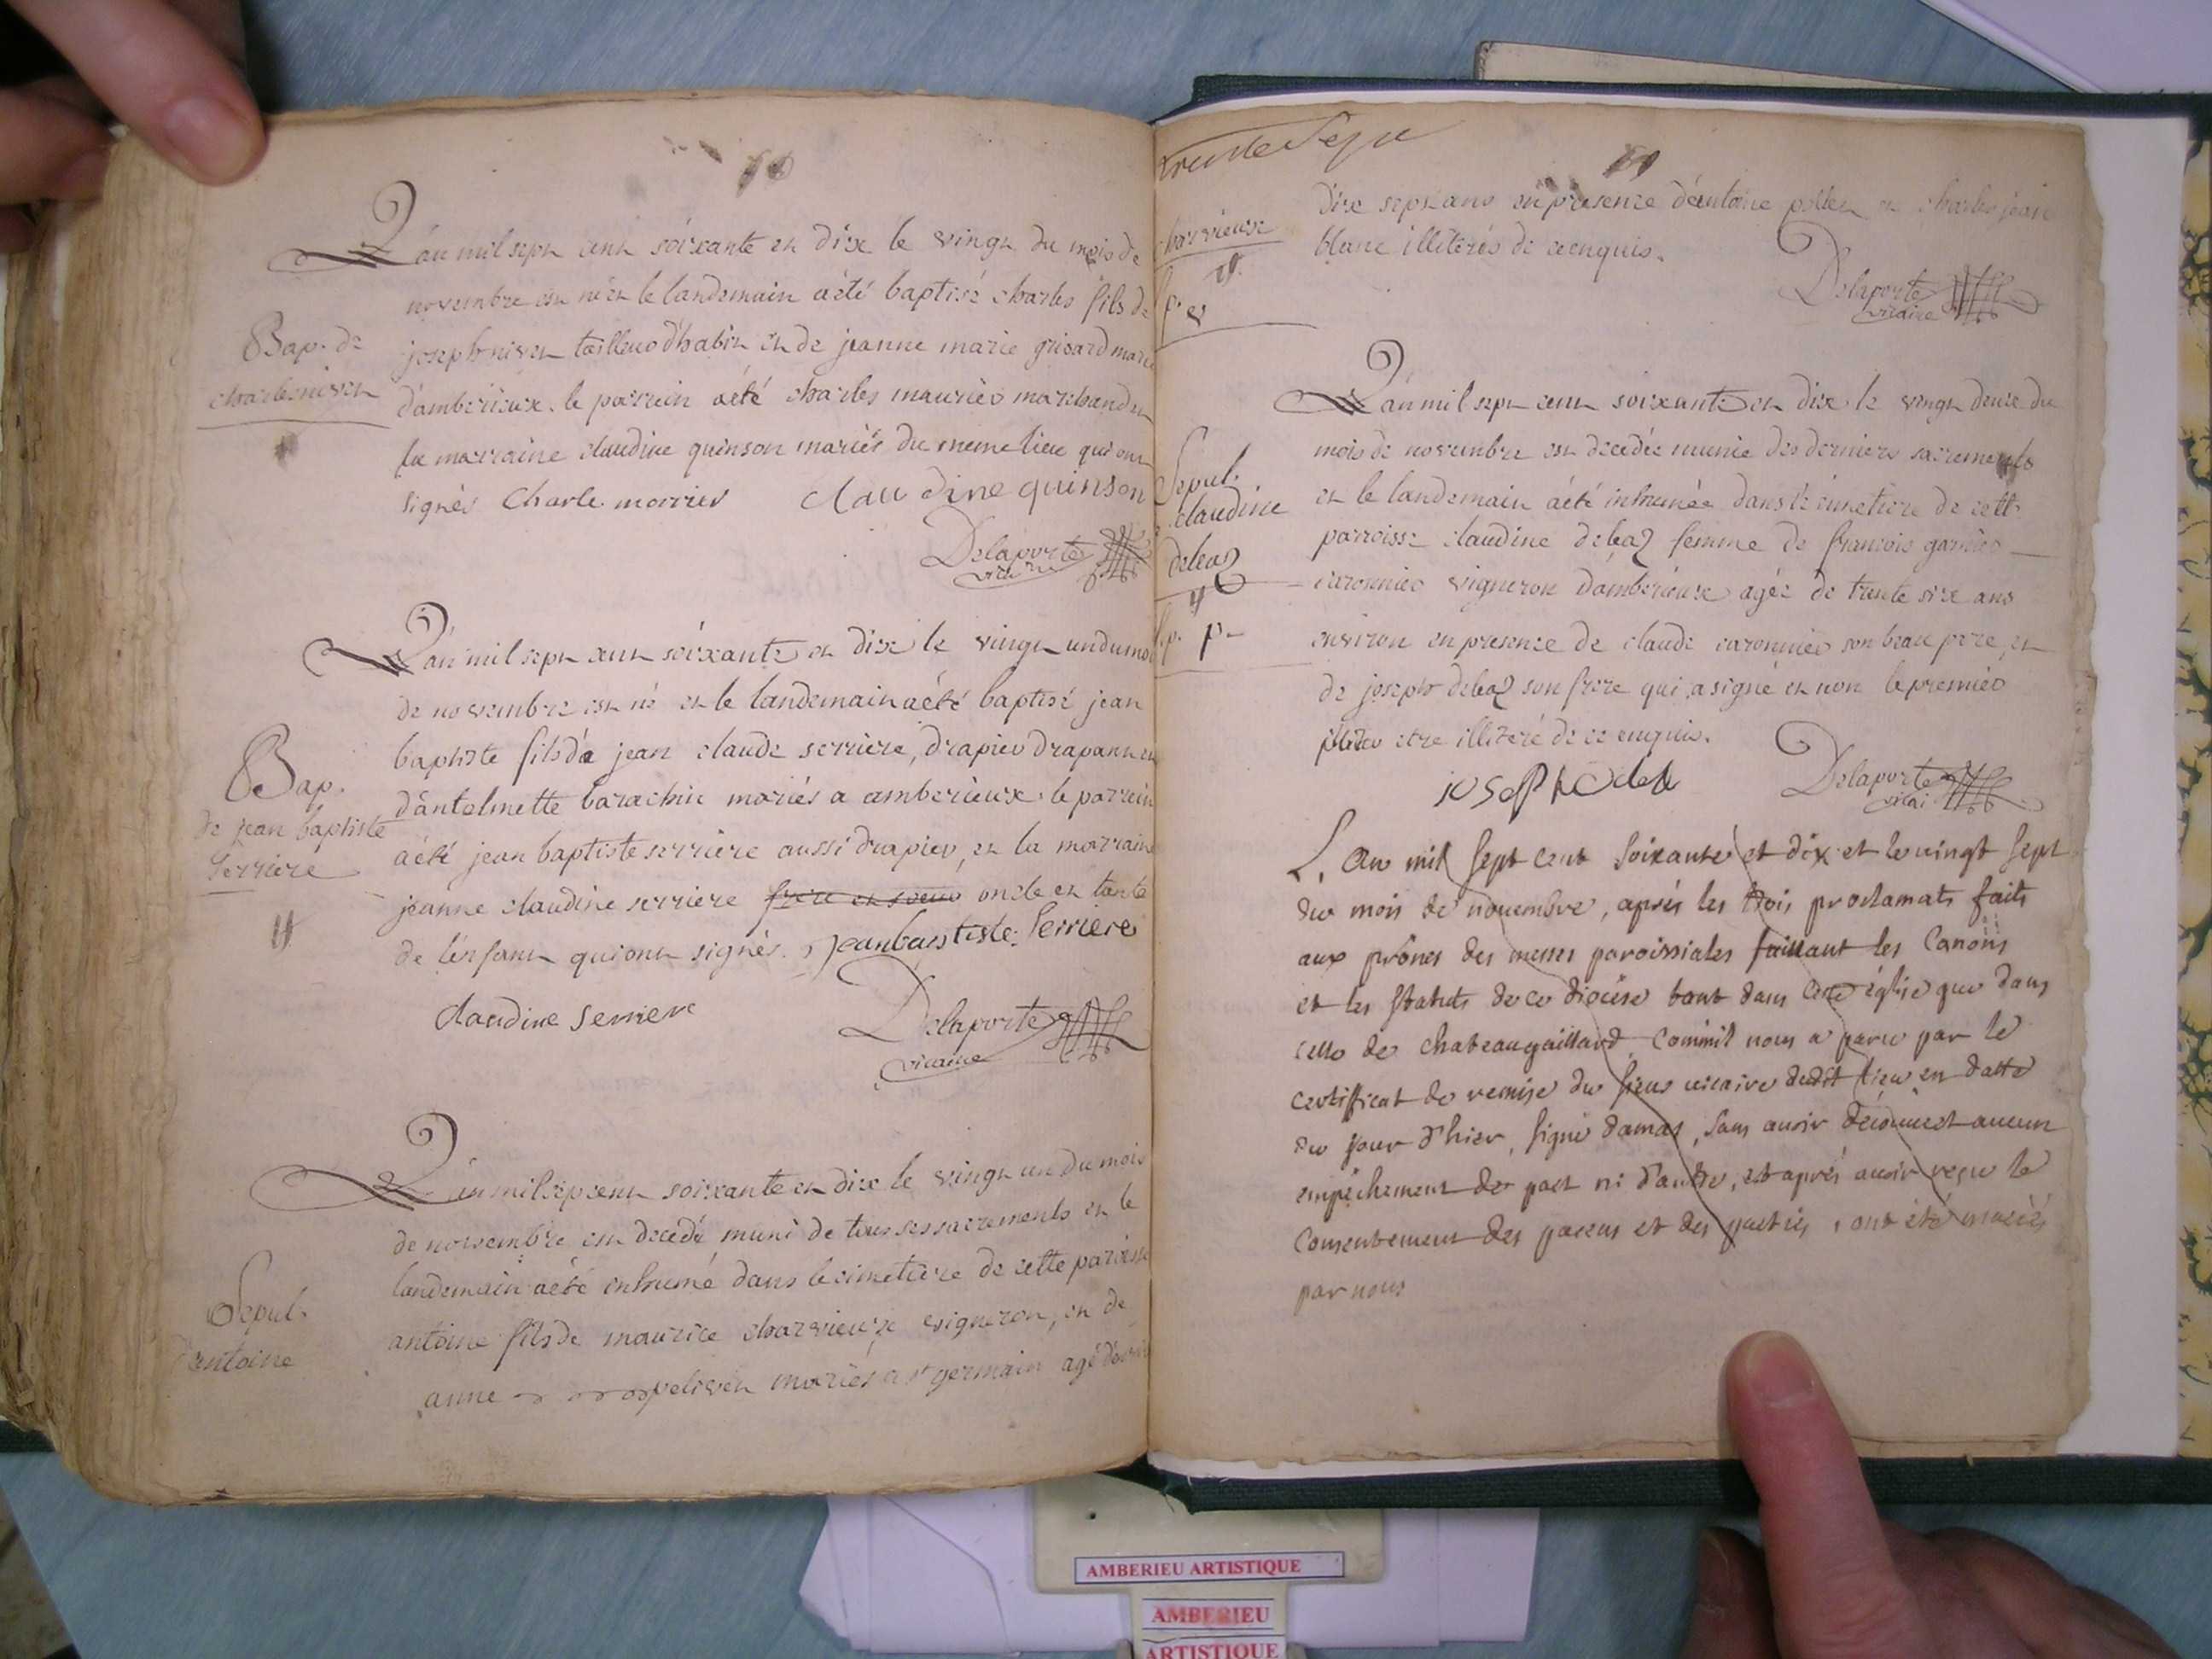 L'an mil sept cent soixante et dix le vingt du mois de
novembre est né et le landemain a été baptisé charles fils de
Bap. de
charles nivet
joseph nivet tailleur d'habit et de jeanne marie grisard mariés
d'amberieux. le parrein a été charles maurier marchand et
la marraine claudine quinson mariés du meme lieu qui ont
signés Charle morrier Claudine quinson
Delaporte
vicaire
L'an mil sept cent soixante et dix le vingt un du mois
de novembre est né et le landemain a été baptisé jean
Bap.
de jean baptiste
serriere
baptiste fils de jean claude serriere, drapier drapant et
d'antelmette barachin mariés a amberieux. le parrein
a été jean baptiste serriere aussi drapier, et la marraine
jeanne claudine serriere frere et soeur oncle et tante
de l'enfant qui ont signés. jean baustiste. Serriere
claudine serriere
Delaporte
vicaire
L'an mil sept cent soixante et dix le vingt un du mois
de novembre est decedé muni de tous ses sacrements et le
landemain a été inhumé dans le cimetiere de cette paroisse
Sepul.
d'antoine
antoine fils de maurice charvieuxe vigneron, et de
anne pelivet mariés a st germain agé d'environ
trente Sept
61
charvieux
dix sept ans en presence d'antoine et charles jean
blanc illiterés de ce enquis.
Delaporte
vicaire
L'an mil sept cent soixante et dix le vingt deux du
mois de novembre est decedée munie des derniers sacrements
Sepul.
claudine
debeaz
et le landemain a été inhumée dans le cimetiere de cette
parroisse claudine debeaz femme de francois garnier
caronnier vigneron d'amberieux agée de trente six ans
environ en presence de claude caronnier son beau pere, et
de joseph debeaz son frere qui a signé et non le premier
pour etre illiteré de ce enquis.
joseph debe
Delaporte
vicai
L'an mil sept cent soixante et dix et le vingt sept
du mois de novembre, aprés les trois proclamats faits
aux prônes des messes paroissiales suivant les Canons
et les statuts de ce diocèse tant dans cette église que dans
celle de chateaugaillard, comm'il nous a paru par le
certifficat de remise du sieur vicaire dudit lieu en datte
du jour d'hier, signé damas, sans avoir découvert aucun
empêchement de part ni d'autre, et aprés avoir reçu le
consentement des parens et des parties, ont été mariés
par nous
AMBERIEU ARTISTIQUE
AMBERIEU
ARTISTIQUE